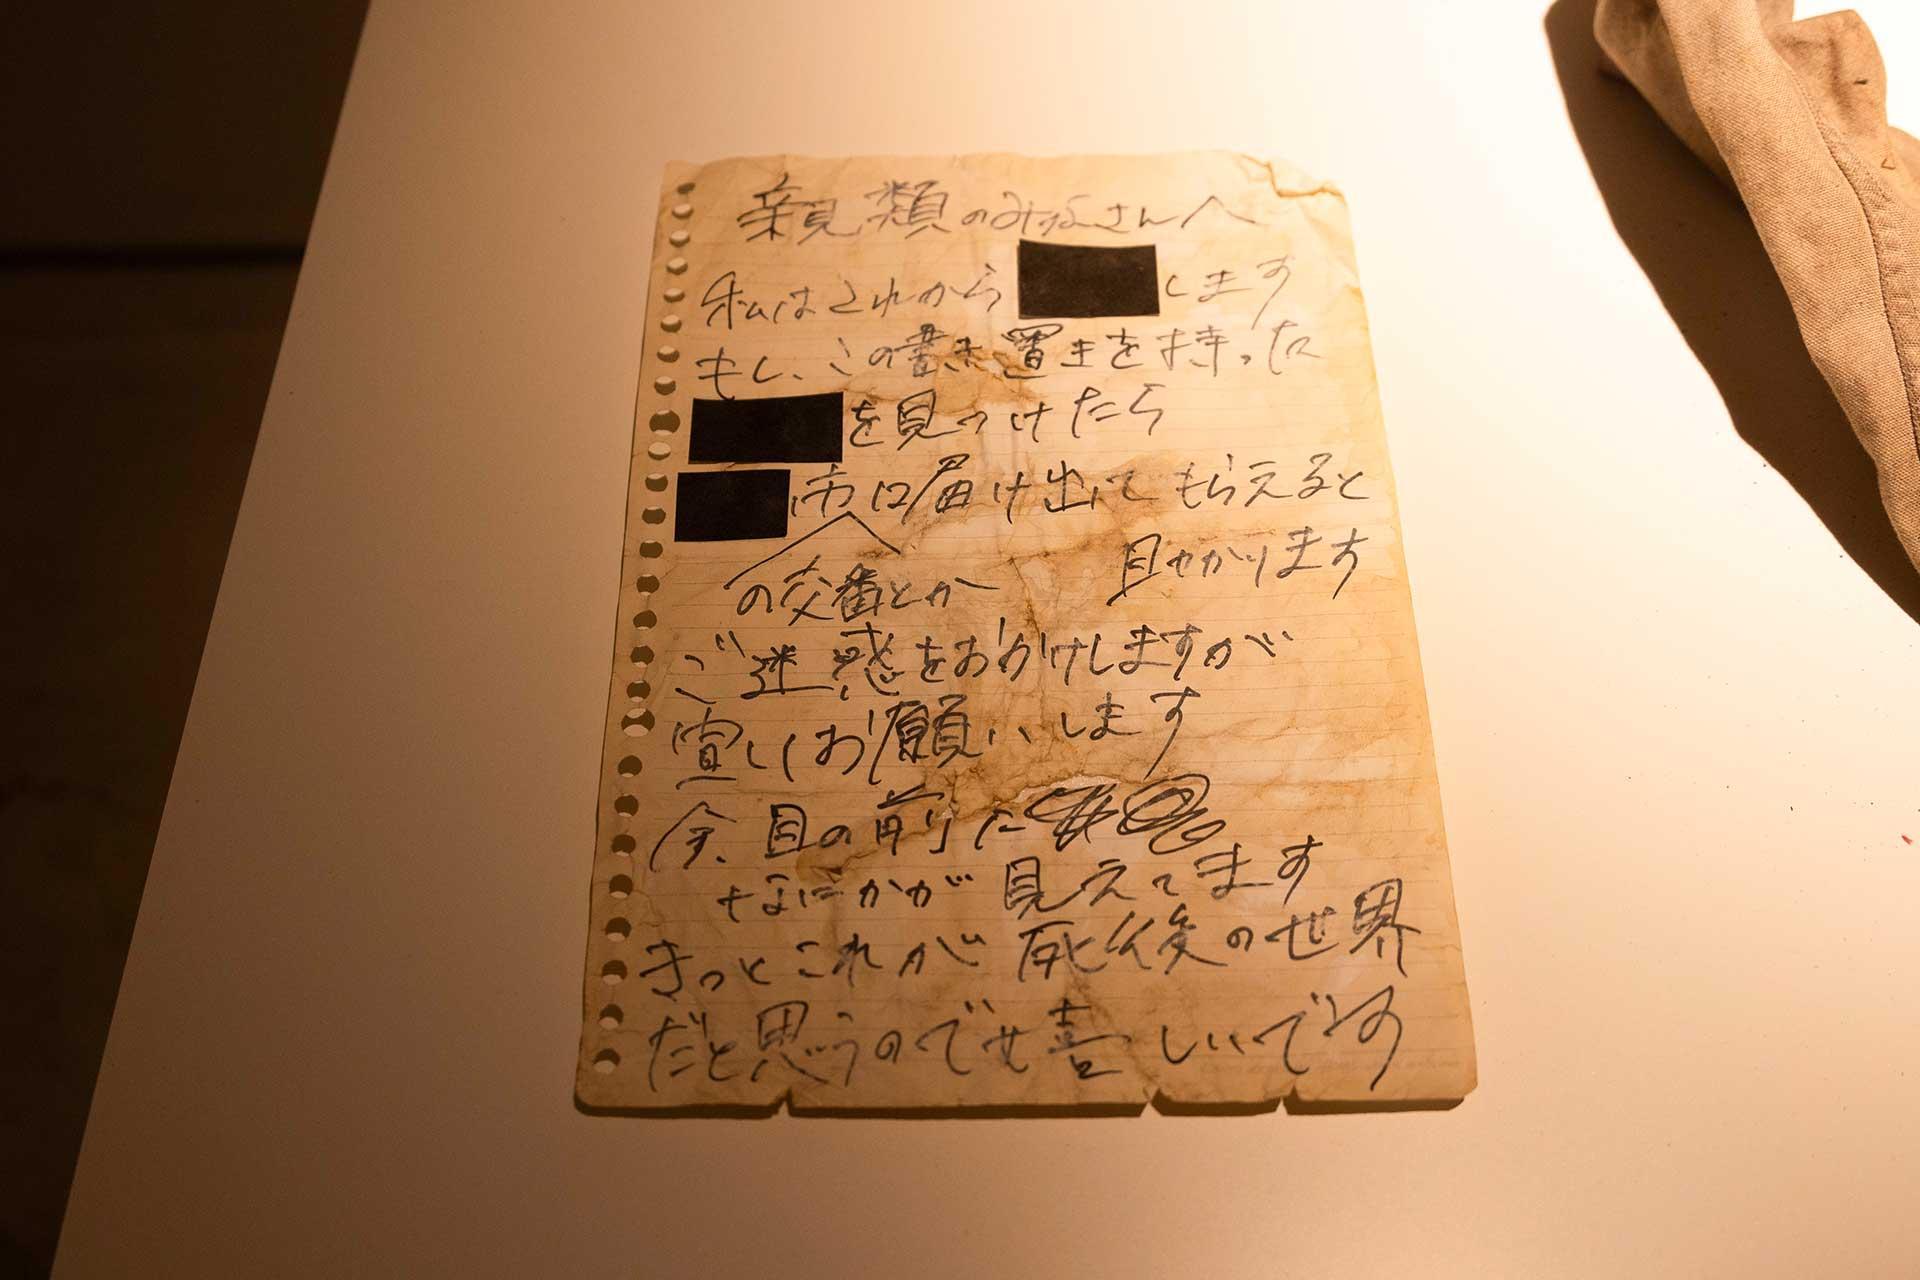 親類のみなさんへ
私はこれから します
もし、この書き置きを持った
を見つけたら
市に届け出てもらえると
の交番とか 助かります
ご迷惑をおかけしますが
宜しくお願いします
今、目の前に
なにかが見えてます
きっとこれが死後の世界
だと思うので 喜しいです